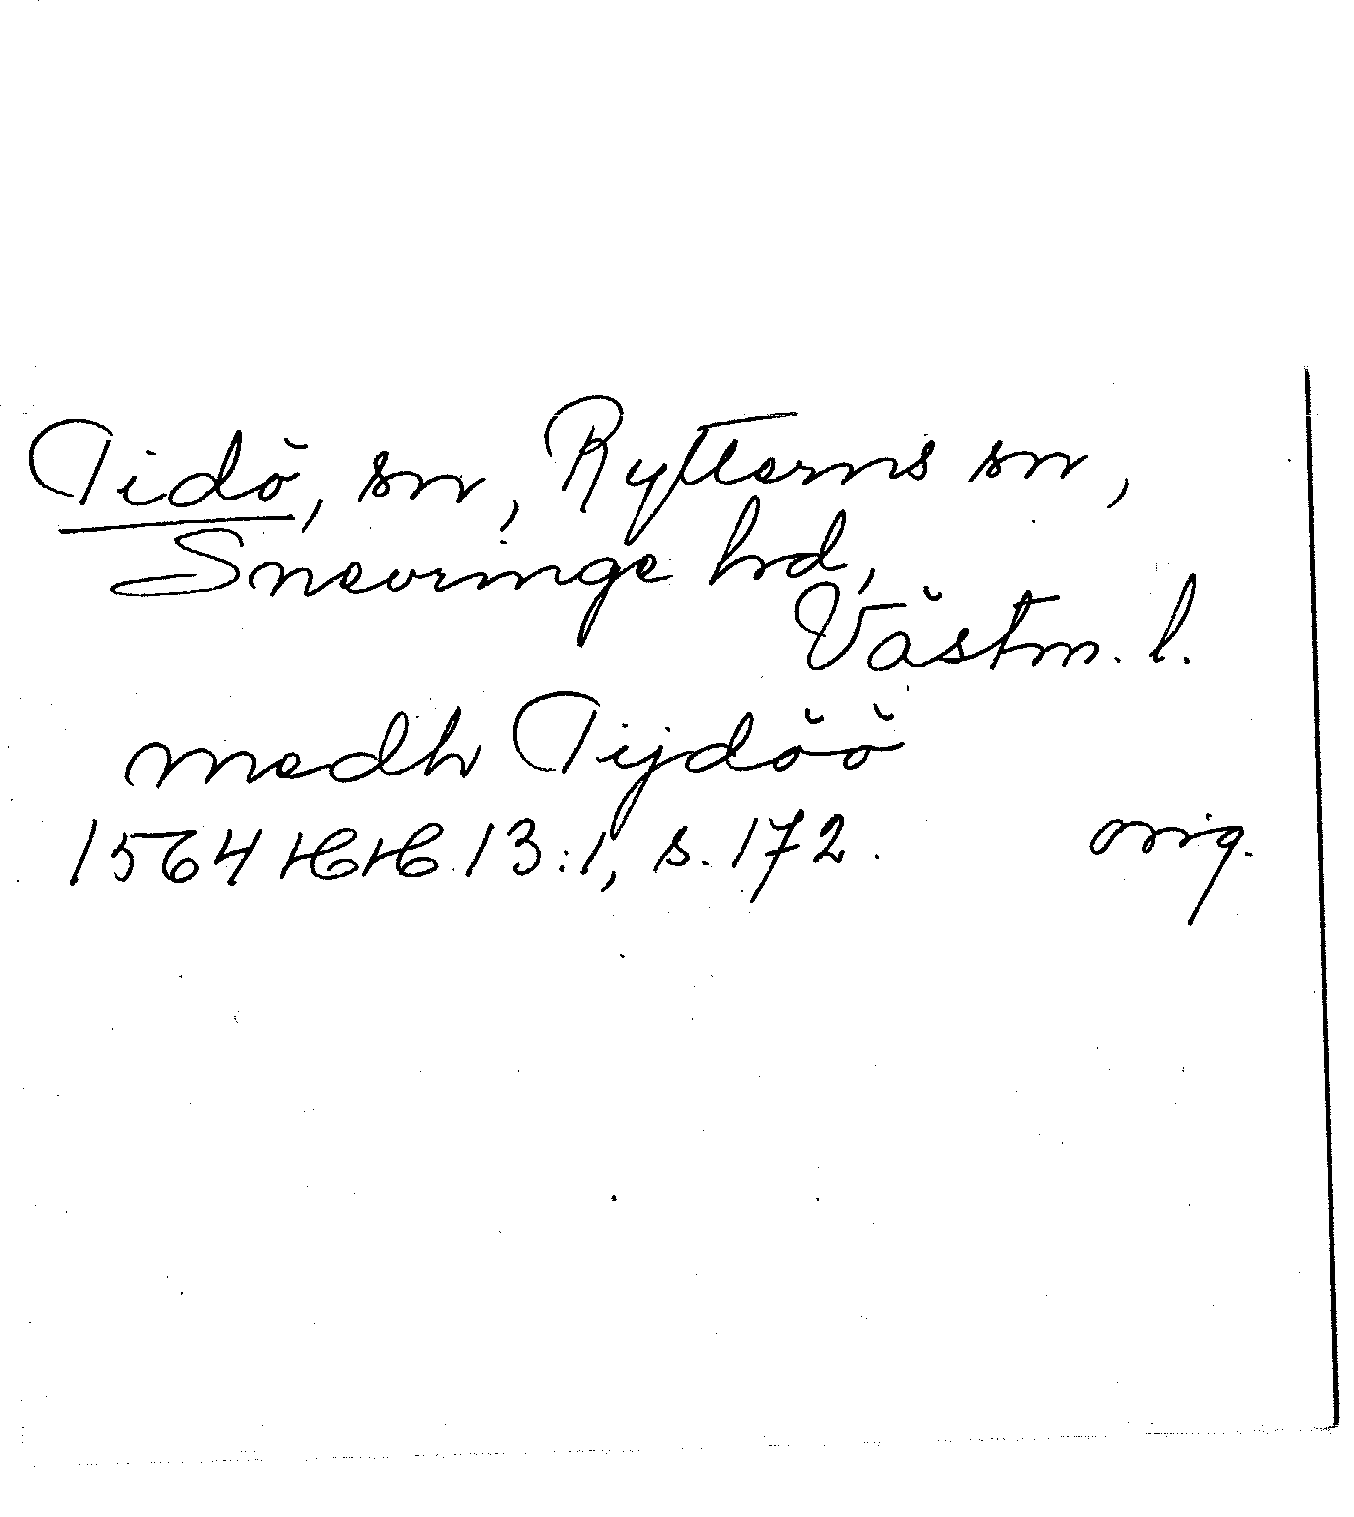 Tidö, sn, Rytterns sn,
Snevringe hd,
Västm. l.
medh Tijdöö
1564 HH 13:1, s. 172. orig.